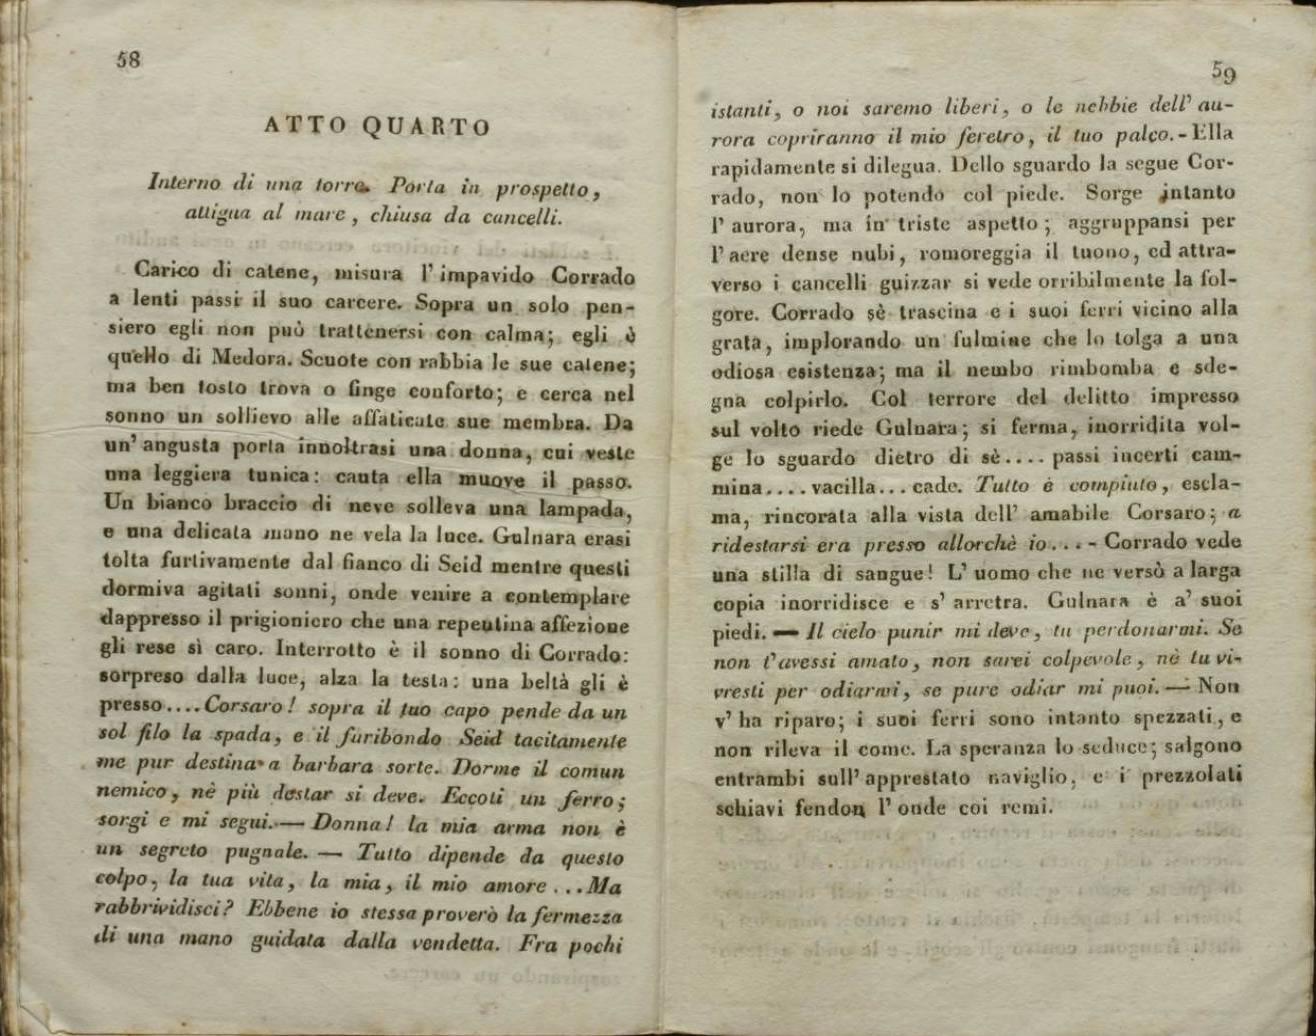 58
ATTO QUARTO
Interno di una torre. Porta in prospetto,
attigua al mare, chiusa da cancelli.
Carico di catene, misura l'impavido Corrado
a lenti passi il suo carcere. Sopra un solo pen-
siero egli non può trattenersi con calma; egli è
quello di Medora. Scuote con rabbia le sue catene;
ma ben tosto trova o finge conforto; e cerca nel
sonno un sollievo alle affaticate sue membra. Da
un'angusta porta innoltrasi una donna, cui veste
una leggiera tunica: cauta ella muove il passo.
Un bianco braccio di neve solleva una lampada,
e una delicata mano ne vela la luce. Gulnara erasi
tolta furtivamente dal fianco di Seid mentre questi
dormiva agitati sonni, onde venire a contemplare
dappresso il prigioniero che una repentina affezione
gli rese sì caro. Interrotto è il sonno di Corrado:
sorpreso dalla luce, alza la testa: una beltà gli è
presso.... Corsaro! sopra il tuo capo pende da un
sol filo la spada, e il furibondo Seid tacitamente
me pur destina a barbara sorte. Dorme il comun
nemico, nè più destar si deve. Eccoti un ferro;
sorgi e mi segui. — Donna! la mia arma non è
un segreto pugnale. — Tutto dipende da questo
colpo, la tua vita, la mia, il mio amore... Ma
rabbrividisci? Ebbene io stessa proverò la fermezza
di una mano guidata dalla vendetta. Fra pochi
59
istanti, o noi saremo liberi, o le nebbie dell'au-
rora copriranno il mio feretro, il tuo palco. - Ella
rapidamente si dilegua. Dello sguardo la segue Cor-
rado, non lo potendo col piede. Sorge intanto
l'aurora, ma in triste aspetto; aggruppansi per
l'aere dense nubi, romoreggia il tuono, ed attra-
verso i cancelli guizzar si vede orribilmente la fol-
gore. Corrado sè trascina e i suoi ferri vicino alla
grata, implorando un fulmine che lo tolga a una
odiosa esistenza; ma il nembo rimbomba e sde-
gna colpirlo. Col terrore del delitto impresso
sul volto riede Gulnara; si ferma, inorridita vol-
ge lo sguardo dietro di sè.... passi incerti cam-
mina.... vacilla... cade. Tutto è compiuto, escla-
ma, rincorata alla vista dell' amabile Corsaro; a
ridestarsi era presso allorchè io... - Corrado vede
una stilla di sangue! L'uomo che ne versò a larga
copia inorridisce e s'arretra. Gulnara è a' suoi
piedi. — Il cielo punir mi deve, tu perdonarmi. Se
non t'avessi amato, non sarei colpevole, nè tu vi-
vresti per odiarmi, se pure odiar mi puoi. — Non
v'ha riparo; i suoi ferri sono intanto spezzati, e
non rileva il come. La speranza lo seduce; salgono
entrambi sull'apprestato naviglio, e i prezzolati
schiavi fendon l'onde coi remi.